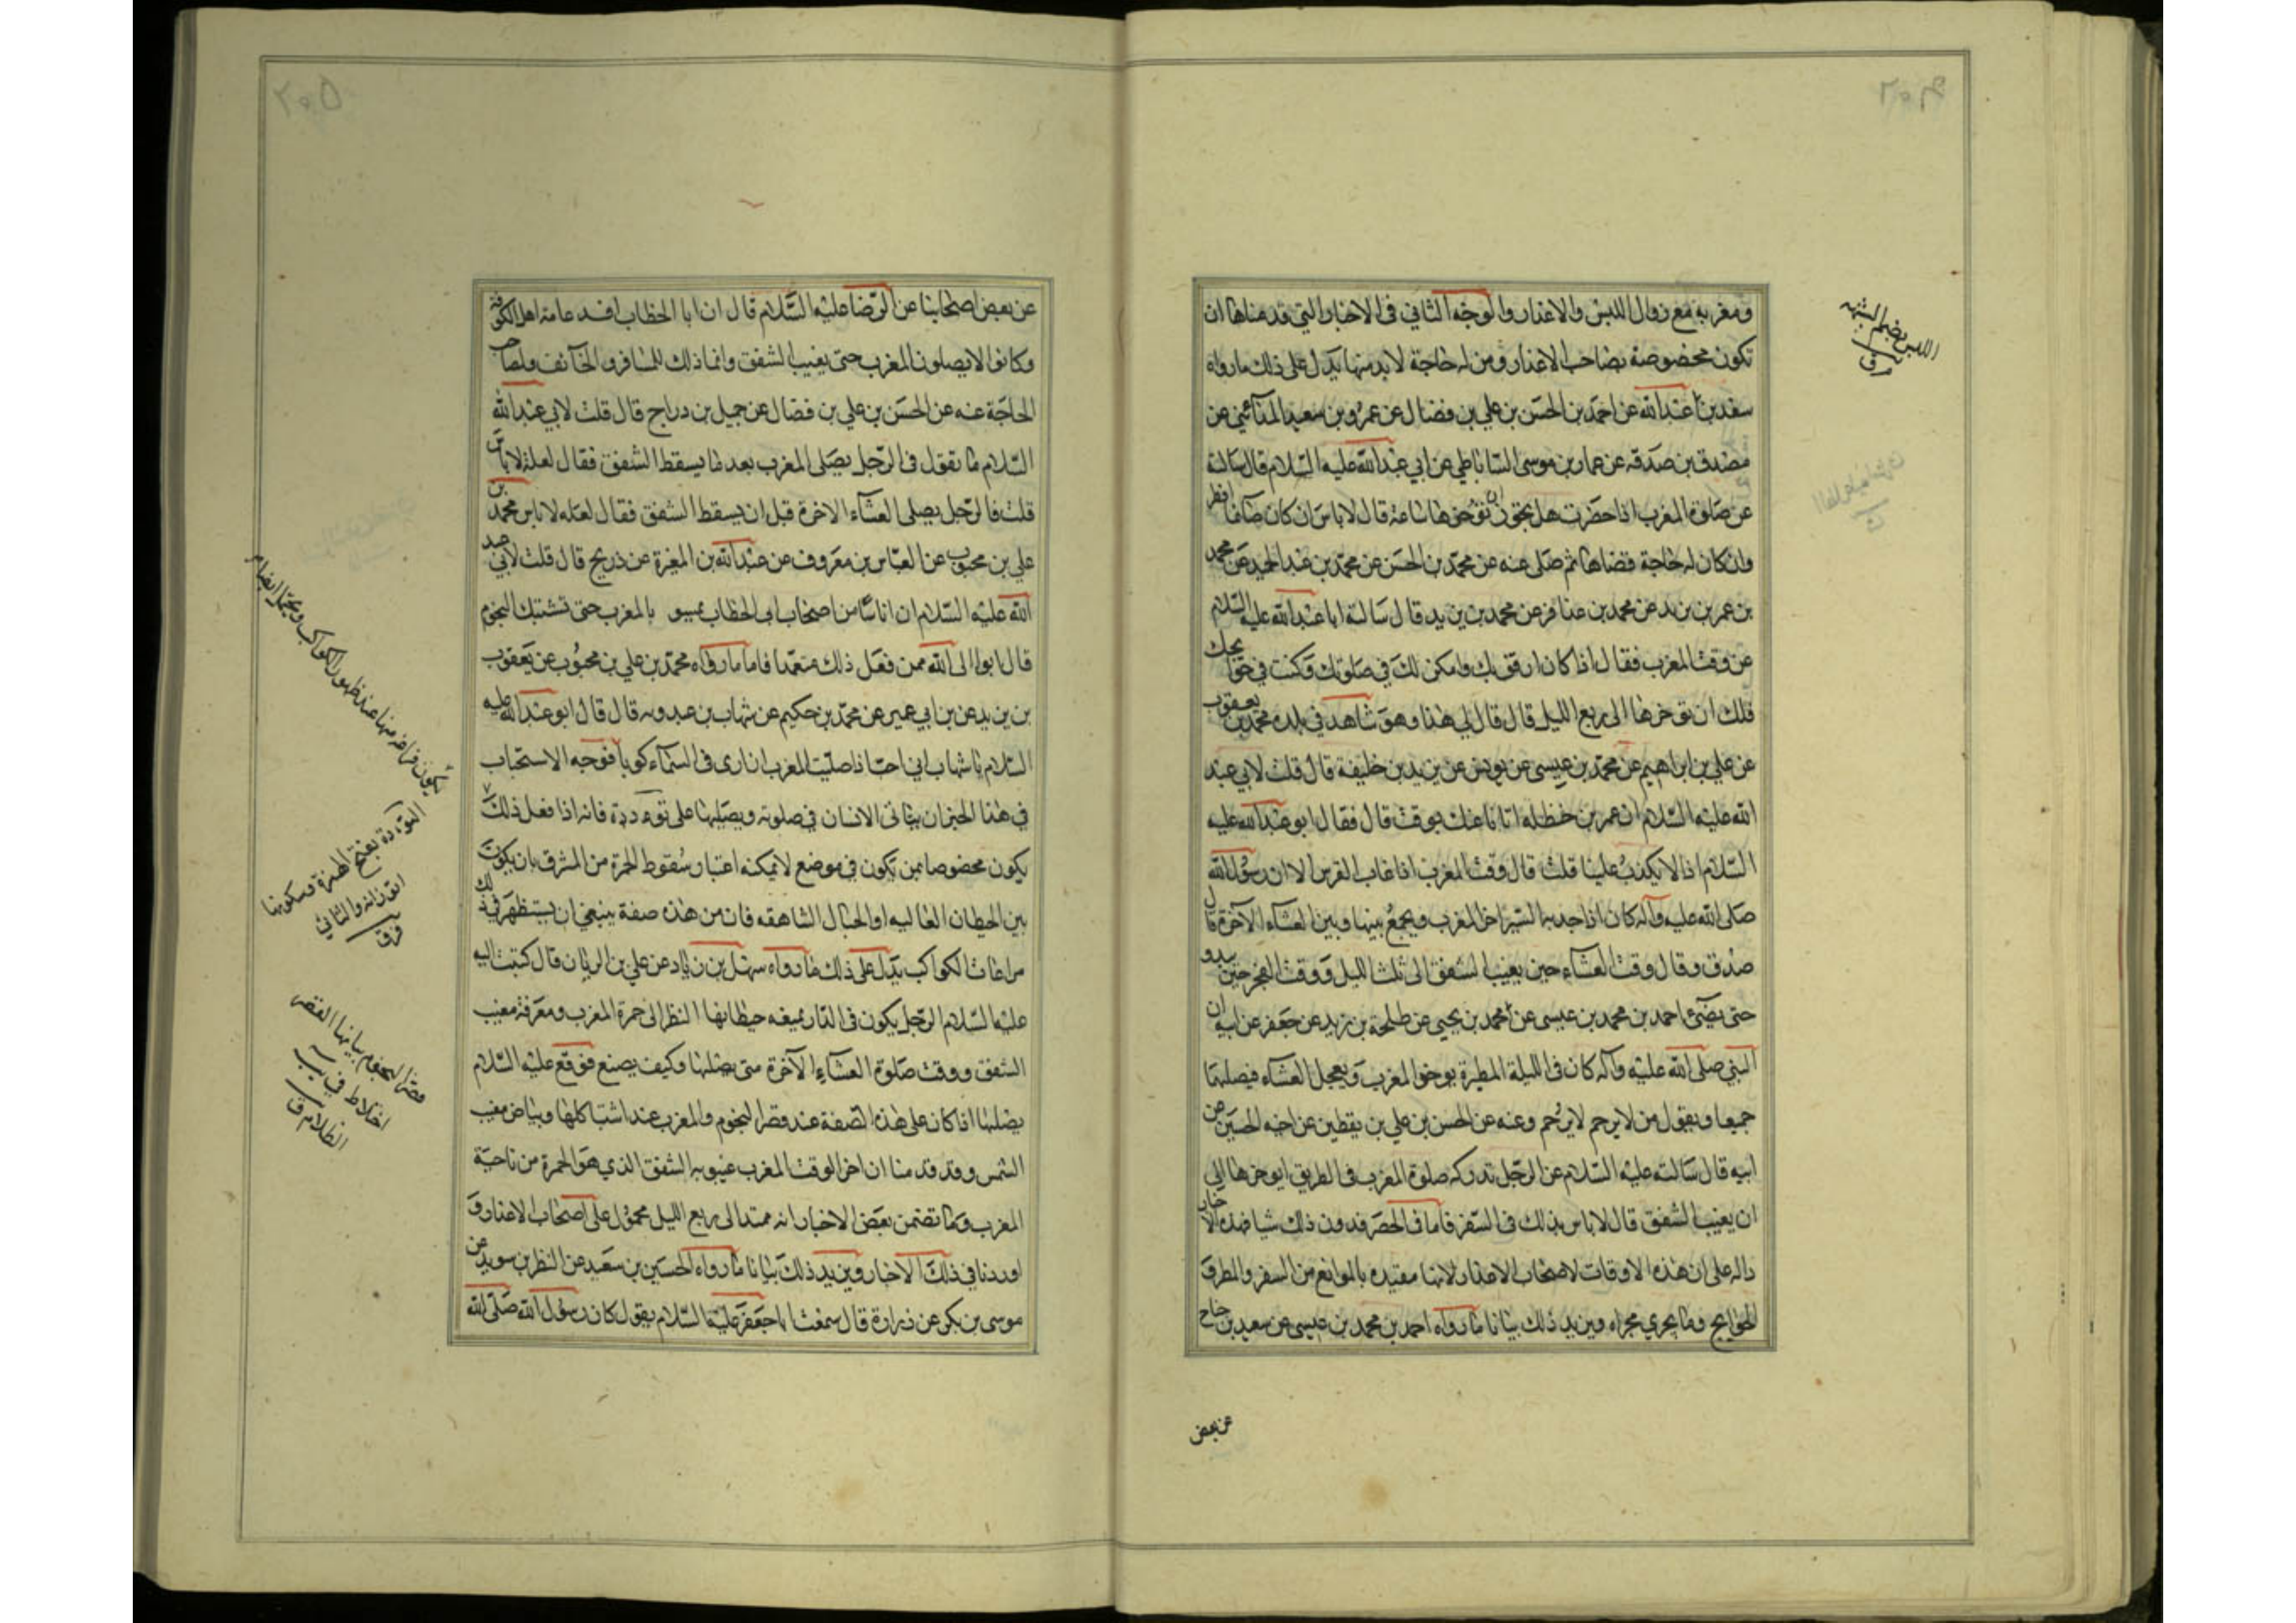 ومغربه مع زوال اللبس والاعذار والوجه الثاني في الاخبار التي قدمناها ان
تكون مخصوصة بصاحب الاعذار ومن له حاجة لا بد منها يدل على ذلك ما رواه
سعد بن عبد الله عن احمد بن الحسن بن علي بن فضال عن عمرو بن سعيد المدائني عن
مصدق بن صدقه عن عمار بن موسى الساباطي عن ابي عبد الله عليه السلام قال سالته
عن صلوة المغرب اذا حضرت هل يجوز ان توخرها ساعة قال لا باس ان كان صائما افطر
وان كان له حاجة قضاها ثم صلى عنه عن محمد بن الحسن عن محمد بن عبد الحميد عن محمد
بن عمر بن يزيد عن محمد بن عذافر عن محمد بن يزيد قال سالت ابا عبد الله عليه السلام
عن وقت المغرب فقال اذا كان ارفق بك وامكن لك في صلوتك وكنت في حوايجك
فلك ان توخرها الى ربع الليل قال قال لي هذا وهو شاهد في بلده محمد بن يعقوب
عن علي بن ابراهيم عن محمد بن عيسى عن يونس عن يزيد بن خليفة قال قلت لابي عبد
الله عليه السلام ان عمر بن حنظله اتانا عنك بوقت قال فقال ابو عبد الله عليه
السلام اذا لا يكذب علينا قلت قال وقت المغرب اذا غاب القرص الا ان رسول الله
صلى الله عليه وآله كان اذا جد به السير اخر المغرب ويجمع بينها وبين العشاء الآخرة قال
صدق وقال وقت العشاء حين يغيب الشفق الى ثلث الليل ووقت الفجر حين يبدو
حتى يضيئ احمد بن محمد بن عيسى عن محمد بن يحيى عن طلحة بن زيد عن جعفر عن ابيه ان
النبي صلى الله عليه وآله كان في الليلة المطيرة يوخر المغرب ويعجل العشاء فيصليهما
جميعا ويقول من لا يرحم لا يرحم وعنه عن الحسن بن علي بن يقطين عن اخيه الحسين عن
ابيه قال سالته عليه السلام عن الرجل تدركه صلوة المغرب في الطريق ايوخرها الى
ان يغيب الشفق قال لا باس بذلك في السفر فاما في الحضر فدون ذلك شيا فهذه الاخبار
داله على ان هذه الاوقات لاصحاب الاعذار لانها مقيده بالموانع من السفر والمطر و
الحوايج وما يجري مجراه ويزيد ذلك بيانا ما رواه احمد بن محمد بن عيسى عن سعيد بن جناح
عن بعض
عن بعض اصحابنا عن الرضا عليه السلام قال ان ابا الخطاب افسد عامة اهل الكوفة
وكانوا لا يصلون المغرب حتى يغيب الشفق وانما ذلك للمسافر والخائف ولصاحب
الحاجة عنه عن الحسن بن علي بن فضال عن جميل بن دراج قال قلت لابي عبد الله
السلام ما تقول في الرجل يصلى المغرب بعد ما يسقط الشفق فقال لعلة لا باس
قلت فالرجل يصلى العشاء الاخرة قبل ان يسقط الشفق فقال لعله لا باس محمد بن
علي بن محبوب عن العباس بن معروف عن عبد الله بن المغيرة عن ذريح قال قلت لابي عبد
الله عليه السلام ان اناسا من اصحاب ابي الخطاب يمسون بالمغرب حتى تشتبك النجوم
قال ابوا الى الله ممن فعل ذلك متعمدا فاما ما رواه محمد بن علي بن محبوب عن يعقوب
بن يزيد عن بن ابي عمير عن محمد بن حكيم عن شهاب بن عبد ربه قال قال ابو عبد الله عليه
السلام يا شهاب اني احب اذا صليت المغرب ان ارى في السماء كوكبا فوجه الاستحباب
في هذا الخبر ان يتانى الانسان في صلوته ويصليها على تؤدة فانه اذا فعل ذلك
يكون مخصوصا بمن يكون في موضع لا يمكنه اعتبار سقوط الحمرة من المشرق بان يكون
بين الحيطان العاليه او الجبال الشاهقه فان من هذه صفة ينبغي ان يستظهر في ذلك
مراعات الكواكب يدل على ذلك ما رواه سهل بن زياد عن علي بن الريان قال كتبت اليه
عليه السلام الرجل يكون في الدار يمنعه حيطانها النظر الى حمرة المغرب ومعرفة مغيب
الشفق ووقت صلوة العشاء الآخرة متى يصليها وكيف يصنع فوقع عليه السلام
يصليها اذا كان على هذه الصفة عند قصر النجوم والمغرب عند اشتباكها وبياض مغيب
الشمس وقد قدمنا ان اخر الوقت المغرب غيبوبه الشفق الذي هو الحمرة من ناحية
المغرب وما تضمن بعض الاخبار انه ممتد الى ربع الليل محمول على اصحاب الاعذار و
اوردنا في ذلك الاخبار ويزيد ذلك بيانا ما رواه الحسين بن سعيد عن النظر بن سويد عن
موسى بن بكر عن زرارة قال سمعت ابا جعفر عليه السلام يقول كان رسول الله صلى الله